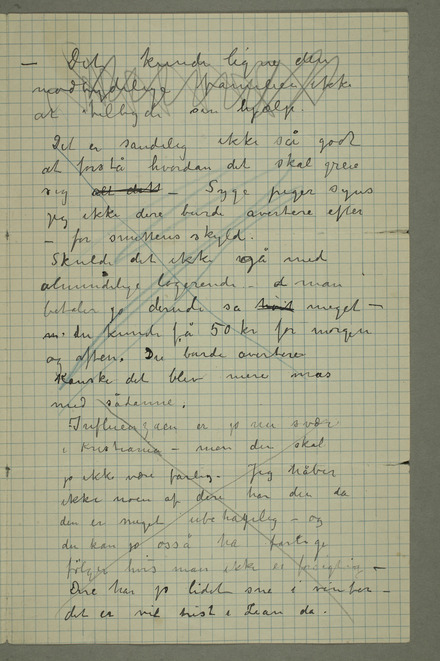 — Det kunde ligne den
nordtydelige familie ikke
at tilbyde sin hjælp.
Det er sandelig ikke så godt
at forstå hvordan det skal greie
sig alt dette — Syge piger synes
jeg ikke dere burde avertere efter
— for smittens skyld.
Skulde det ikke gå med
almindelige logerende — man
betaler jo dernede så meget —
du kunde få 50 kr for morgen
og aften. Du burde avertere
Kanske det blev mere mas
med sådanne.
Influenzaen er jo nu svær
i Kristiania — men den skal
jo ikke være farlig. Jeg håber
ikke noen af dere har den da
den er meget ubehagelig — og
du kan jo også ha farlige
følger hvis man ikke er forsigtig —
Dere har jo lidet sne i vinter —
det er vel trist i Lean da.